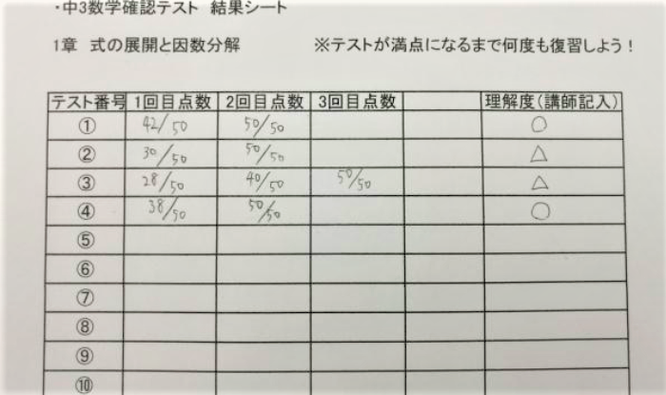 ・中3数学確認テスト 結果シート
1章 式の展開と因数分解 ※テストが満点になるまで何度も復習しよう！
テスト番号 1回目点数 2回目点数 3回目点数 理解度(講師記入)
① 42/50 50/50 ○
② 30/50 50/50 △
③ 28/50 40/50 50/50 △
④ 38/50 50/50 ○
⑤
⑥
⑦
⑧
⑨
⑩